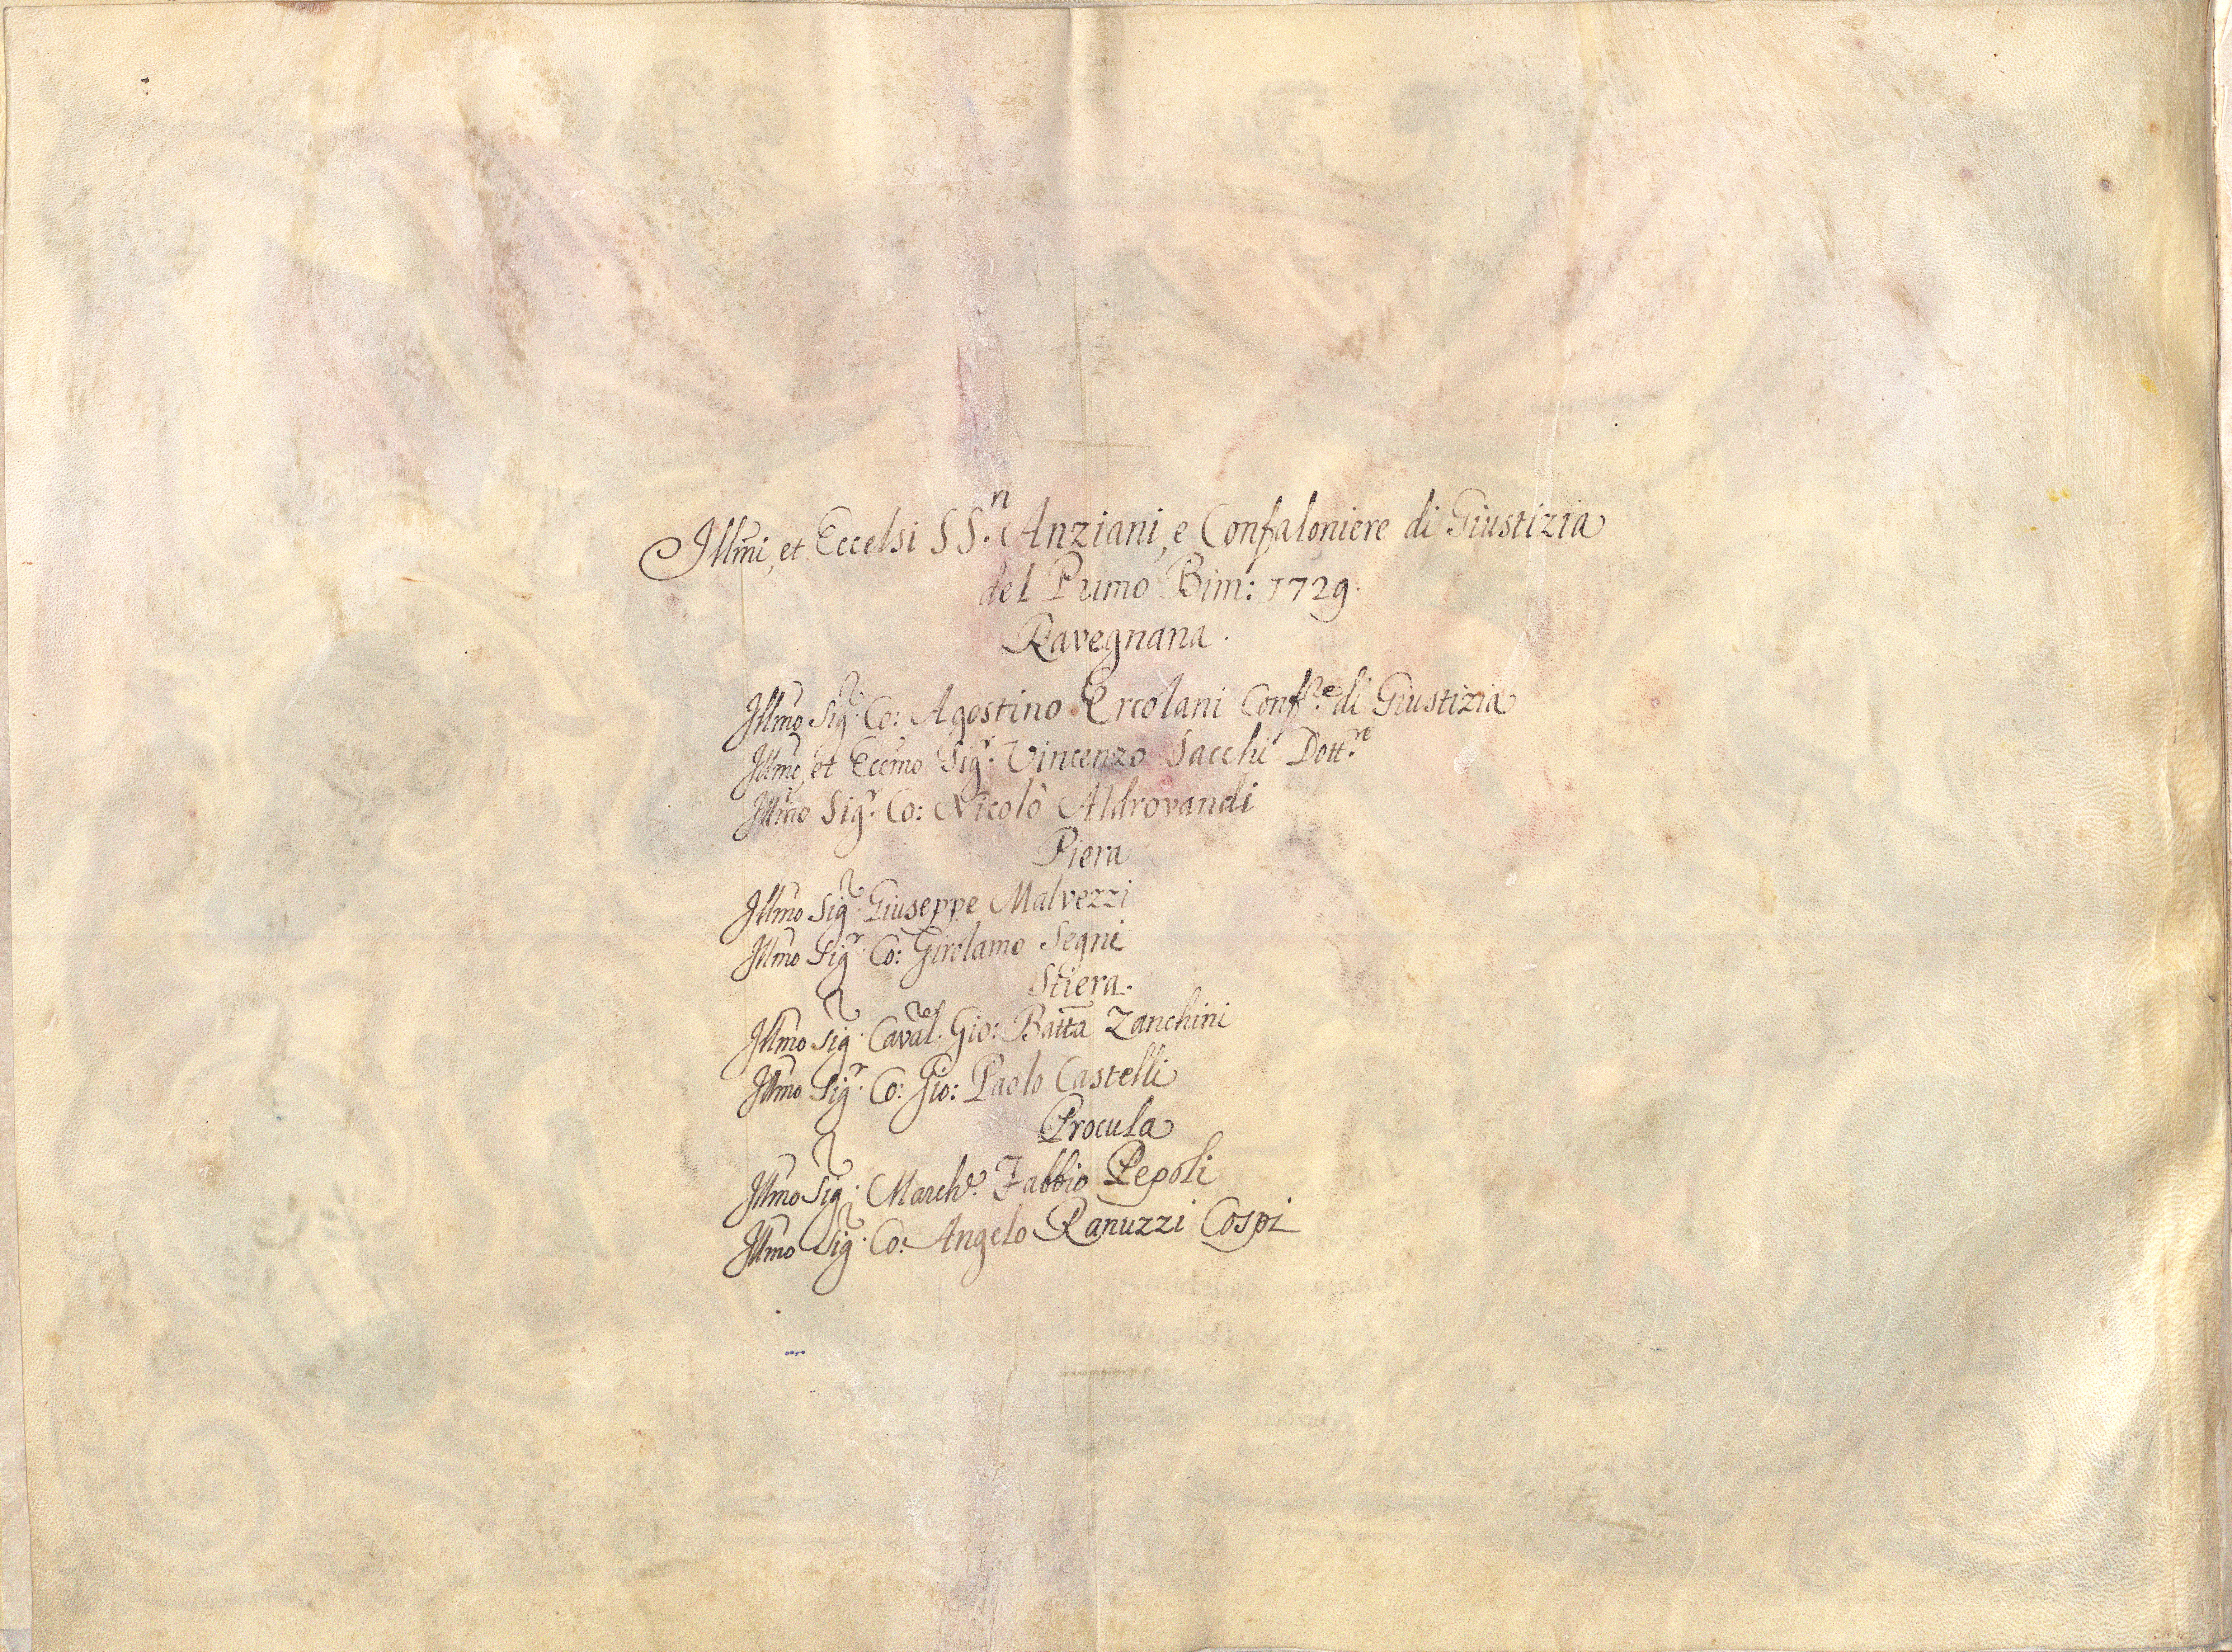 Illmi, et Eccelsi SS.ri Anziani, e Confaloniere di Giustizia
del Primo Bim: 1729.
Ravegnana.
Illmo Sig.r Co: Agostino Ercolani Conf.re di Giustizia
Illmo, et Eccmo Sig.r Vincenzo Sacchi Dott.re
Illmo Sig.r Co: Nicolò Aldrovandi
Piera
Illmo Sig.r Giuseppe Malvezzi
Illmo Sig.r Co: Girolamo Segni
Stiera.
Illmo Sig.r Caval.re Gio: Batta Zanchini
Illmo Sig.r Co: Gio: Paolo Castelli
Procula
Illmo Sig.r March.e Fabbio Pepoli
Illmo Sig.r Co: Angelo Ranuzzi Cospi